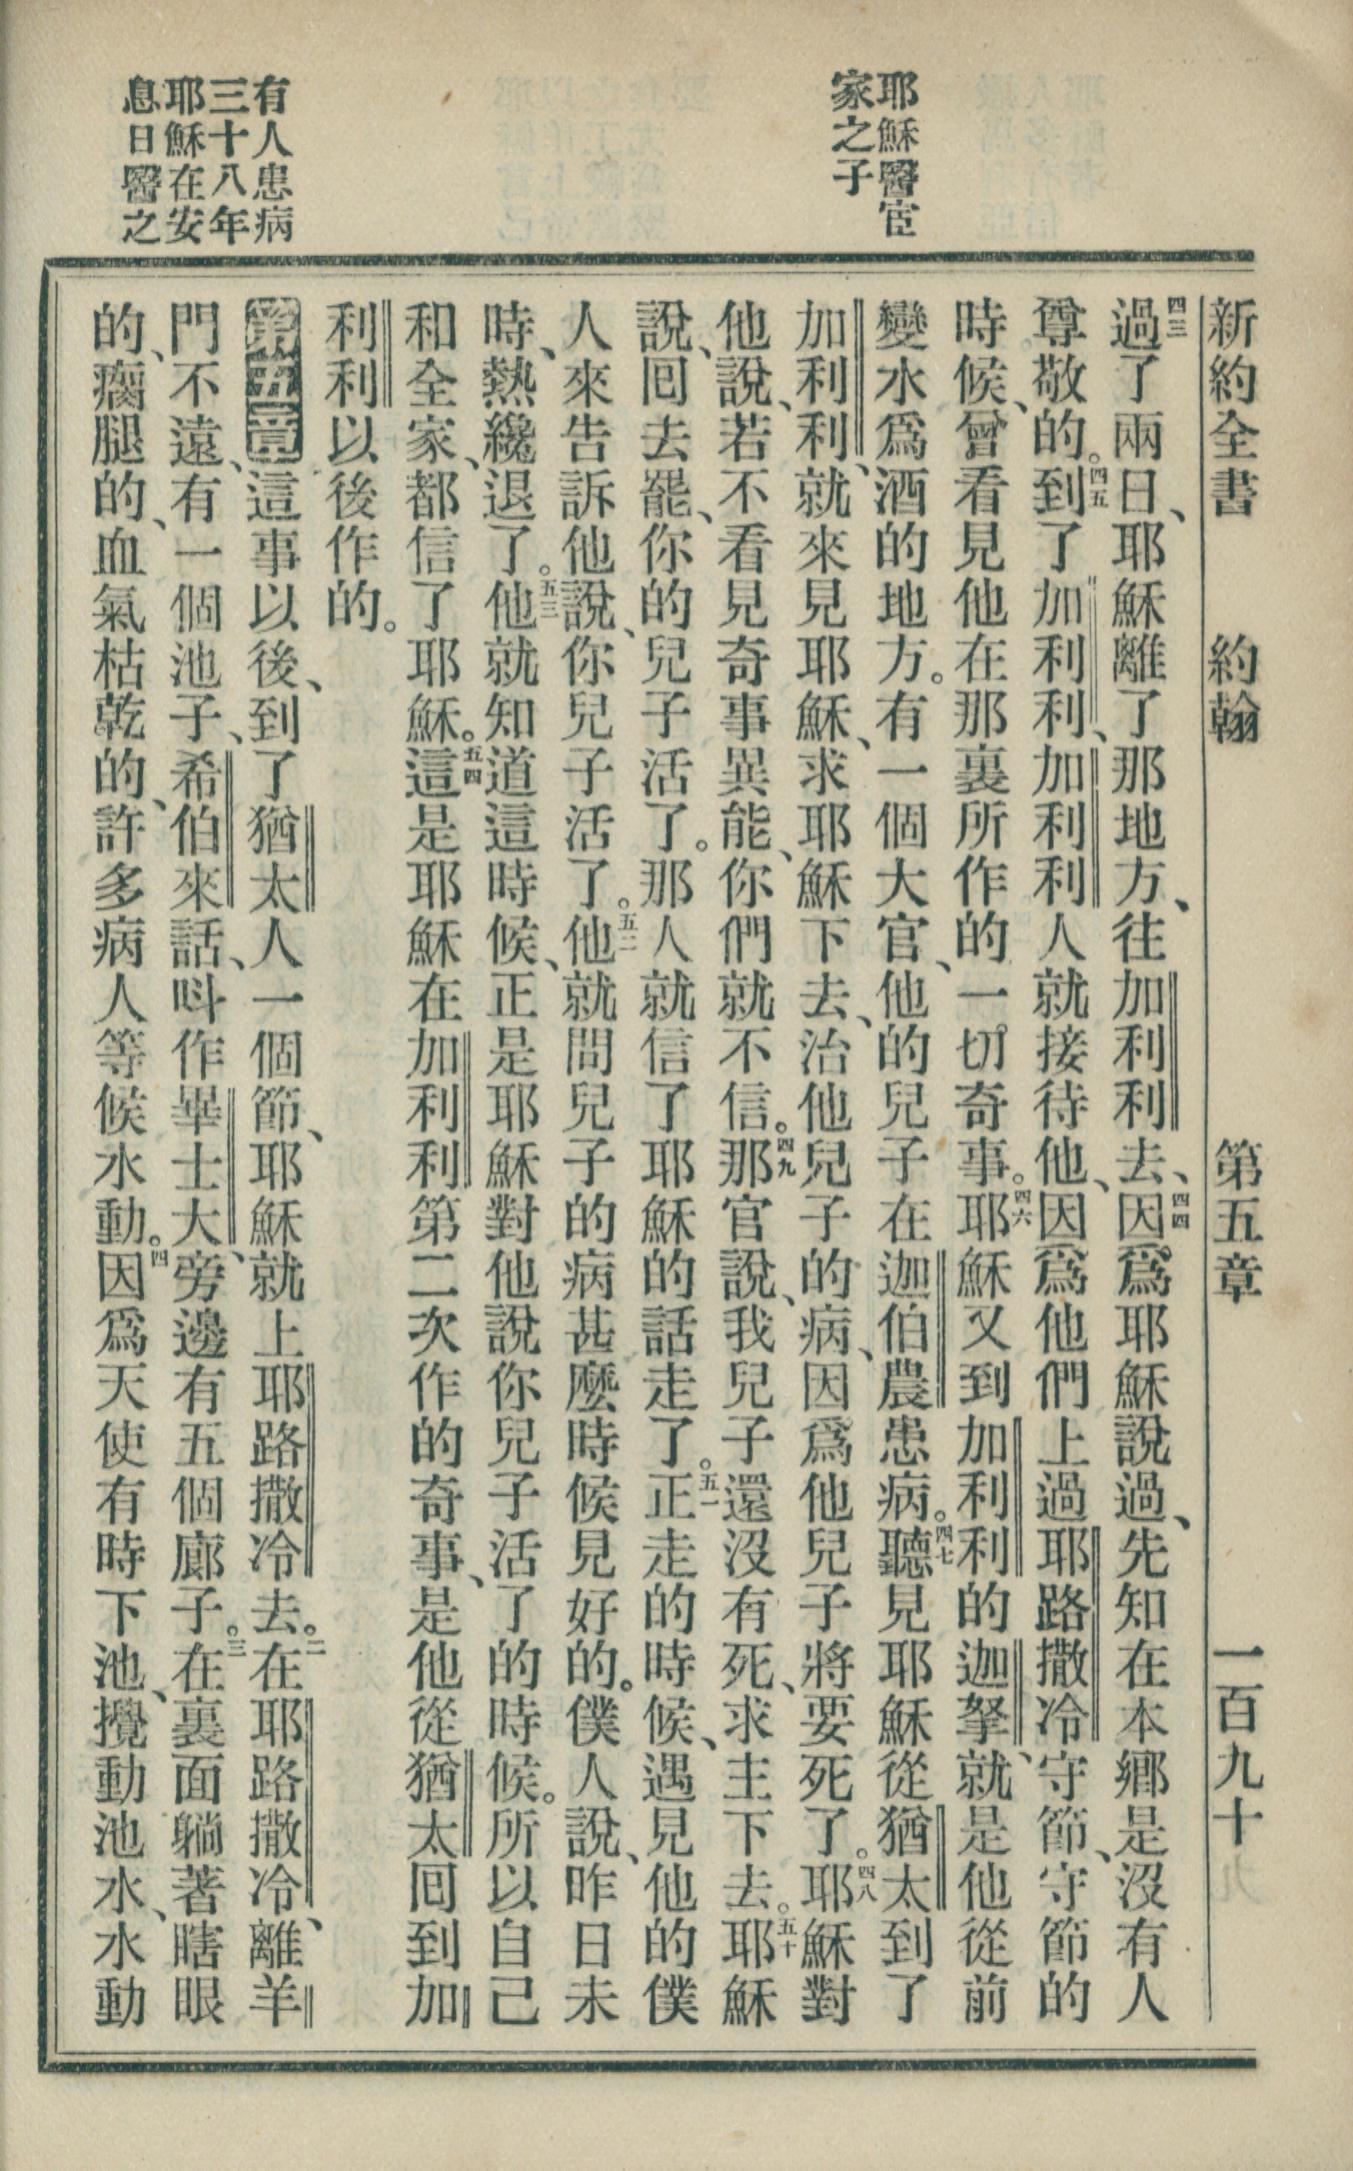 新約全書 約翰 第五章 一百九十
耶穌醫宦
家之子
四三過了兩日、耶穌離了那地方、往加利利去、四四因爲耶穌說過、先知在本鄉是沒有人
尊敬的。四五到了加利利、加利利人就接待他、因爲他們上過耶路撒冷守節、守節的
時候、曾看見他在那裏所作的一切奇事。四六耶穌又到加利利的迦拏、就是他從前
變水爲酒的地方。有一個大官、他的兒子在迦伯農患病。四七聽見耶穌從猶太到了
加利利、就來見耶穌、求耶穌下去、治他兒子的病、因爲他兒子將要死了。四八耶穌對
他說、若不看見奇事異能、你們就不信。四九那官說、我兒子還沒有死、求主下去。五十耶穌
說、囘去罷、你的兒子活了。那人就信了耶穌的話走了。五一正走的時候、遇見他的僕
人來告訴他說、你兒子活了。五二他就問兒子的病甚麼時候見好的。僕人說、昨日未
時、熱纔退了。五三他就知道這時候、正是耶穌對他說你兒子活了的時候。所以自己
和全家、都信了耶穌。五四這是耶穌在加利利第二次作的奇事、是他從猶太囘到加
利利以後作的。
有人患病
三十八年
耶穌在安
息日醫之
第五章這事以後、到了猶太人一個節、耶穌就上耶路撒冷去。二在耶路撒冷、離羊
門不遠、有一個池子、希伯來話、呌作畢士大、旁邊有五個廊子。三在裏面躺著瞎眼
的、瘸腿的、血氣枯乾的、許多病人等候水動。四因爲天使有時下池、攪動池水、水動